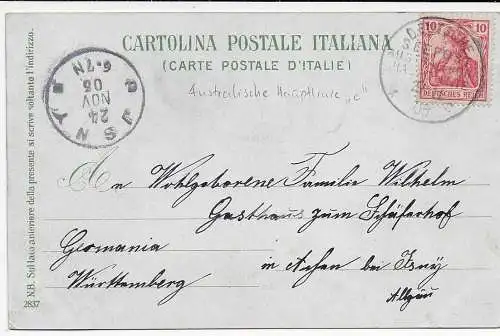 CARTOLINA POSTALE ITALIANA
(CARTE POSTALE D'ITALIE)
10 10
DEUTSCHES REICH
DEUTSCHE
Australische Hauptlinie „c"
ISNY
24
NOV
05
6-7N
An Wohlgeborene Familie Wilhelm
Gasthaus zum Schäferhof
Germania in bei Isny
Württemberg Allgäu
N.B. Sul lato anteriore della presente si scrive soltanto l'indirizzo.
2837